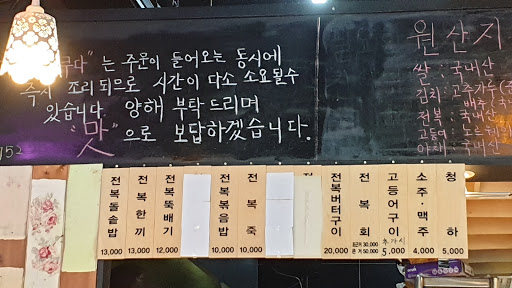 구다" 는 주문이 들어오는 동시에
즉시 조리 되므로 시간이 다소 소요될수
있습니다. 양해 부탁드리며
"맛" 으로 보답하겠습니다.
원산지
쌀: 국내산
김치: 고추가루(
배추(국
전복: 국내산
고등어: 노르웨이
야채: 국내산
전복돌솥밥 13,000
전복한끼 13,000
전복뚝배기 12,000
전복볶음밥 10,000
전복죽 10,000
전
전복버터구이 20,000
전복회 30,000 50,000
고등어구이 추가시 5,000
소주·맥주 4,000
청하 5,000